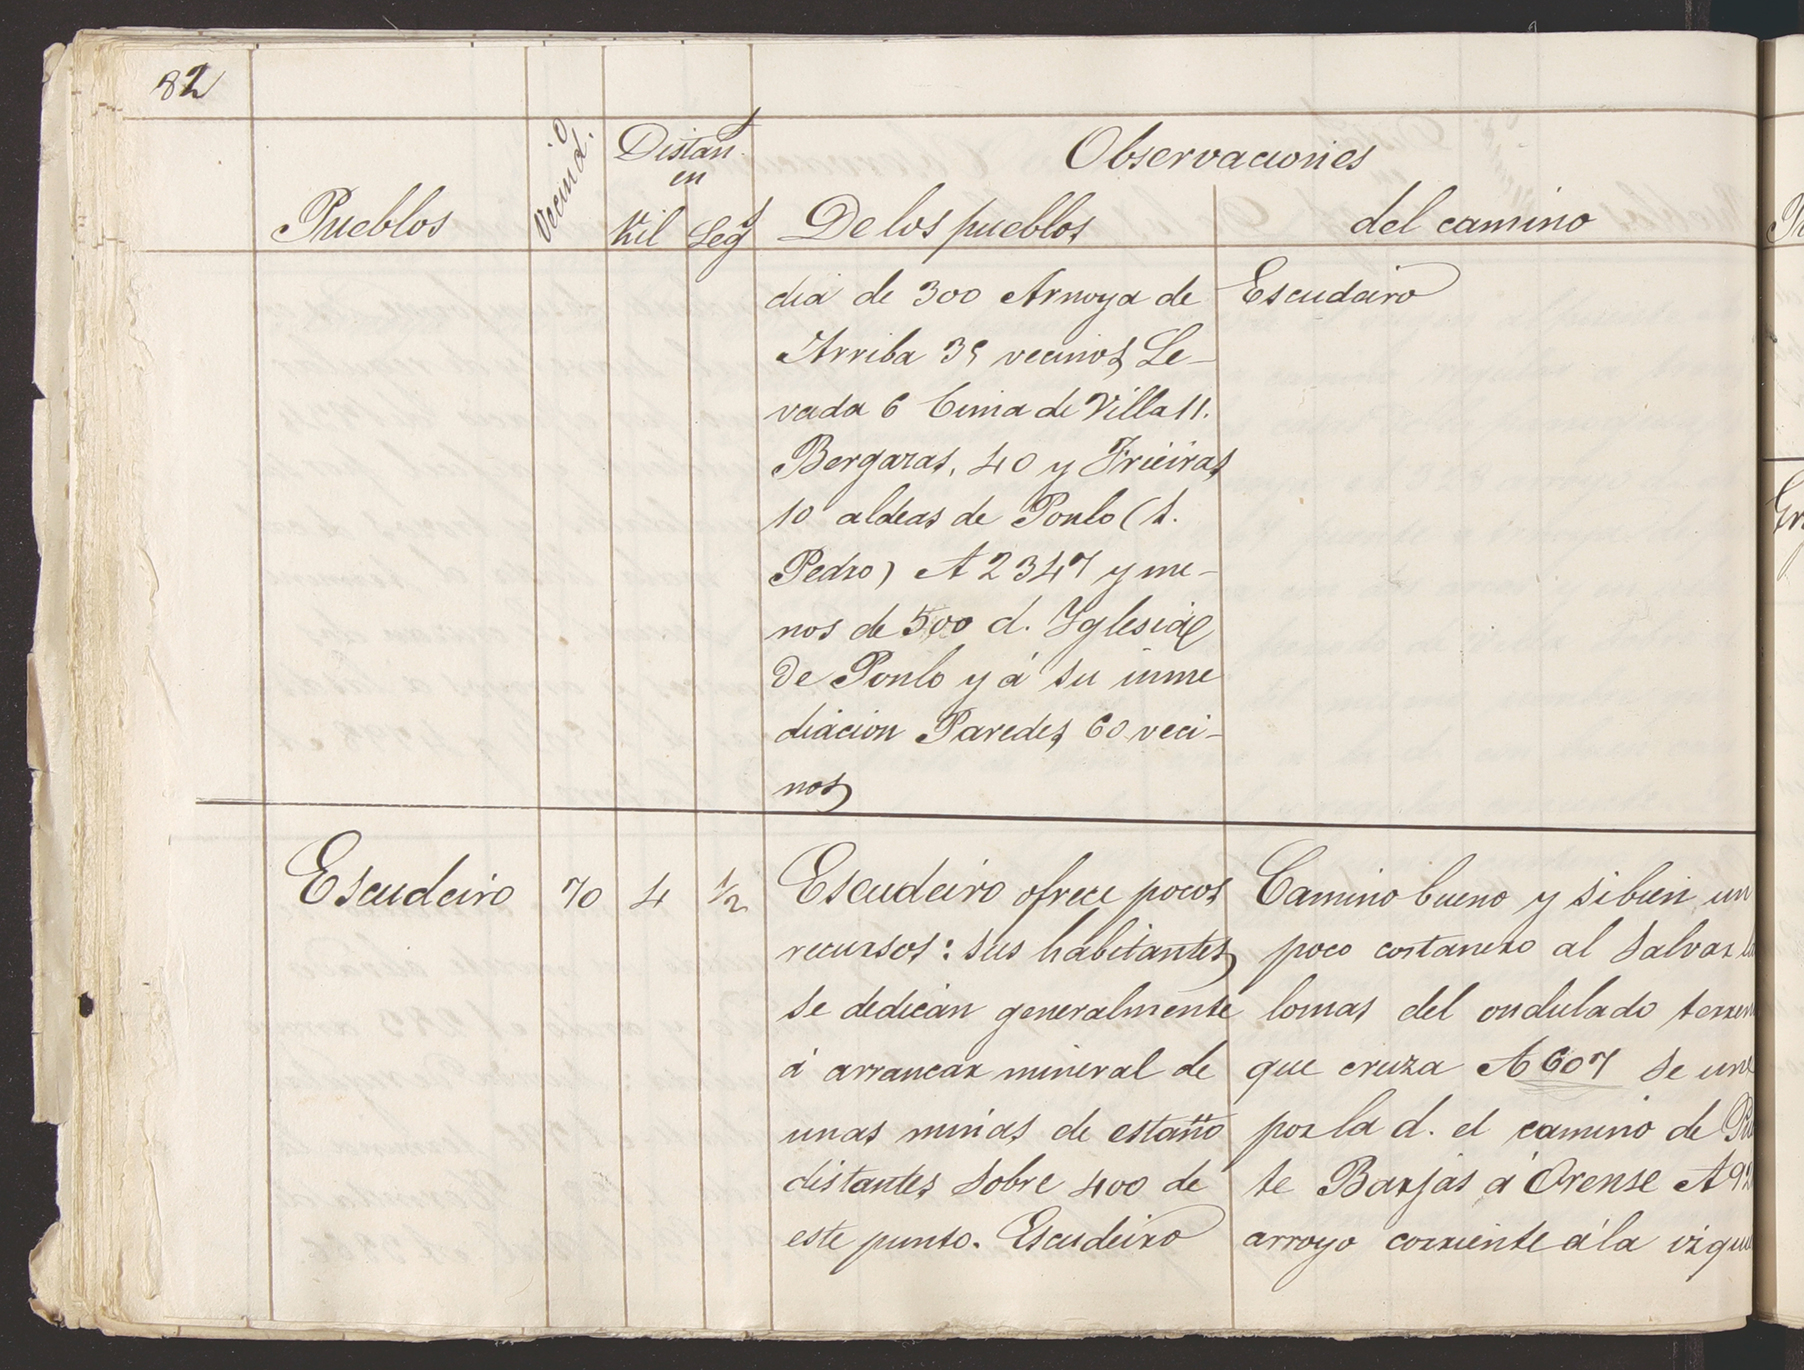 82
Observaciones
Pueblos Vecind.o Distan.s en Kil Leg.s De los pueblos del camino
dia de 300 Arnoya de
Arriba 35 vecinos Le-
vada 6 Cima de Villa 11.
Bergazas, 40 y Frieiras
10 aldeas de Poulo (S.
Pedro) A 2347 y me-
nos de 500 d. Yglesia
de Poulo y á su inme
diacion Paredes 60 veci-
nos
Escudeiro
Escudeiro 70 4 1/2
Escudeiro ofrece pocos
recursos: sus habitantes
se dedican generalmente
á arrancar mineral de
unas minas de estaño
distantes sobre 400 de
este punto. Escudeiro
Camino bueno y si bien un
poco costanero al salvar
lomas del ondulado
que cruza A 607 se une
por la d. el camino de
te Barjas á Orense A
arroyo corriente á la